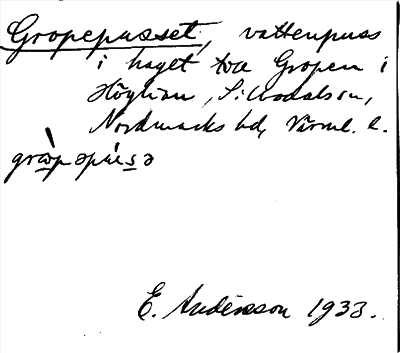 Gropepusset, vattenpuss
i haget toa Gropen i
Höglian, Silbodals sn,
Nordmarks hd, Värml. l.
græpəpusə
E. Andersson 1933.